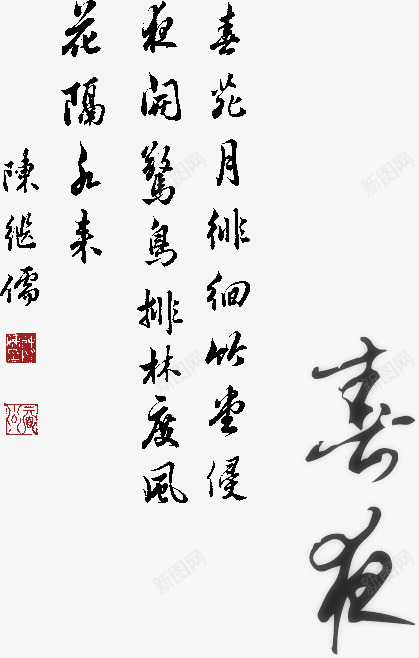 春夜
春苑月徘徊竹堂侵
夜開驚鳥排林度風
花隔水来
陳继儒
新图网
新图网
新图网
新图网
新图网
新图网